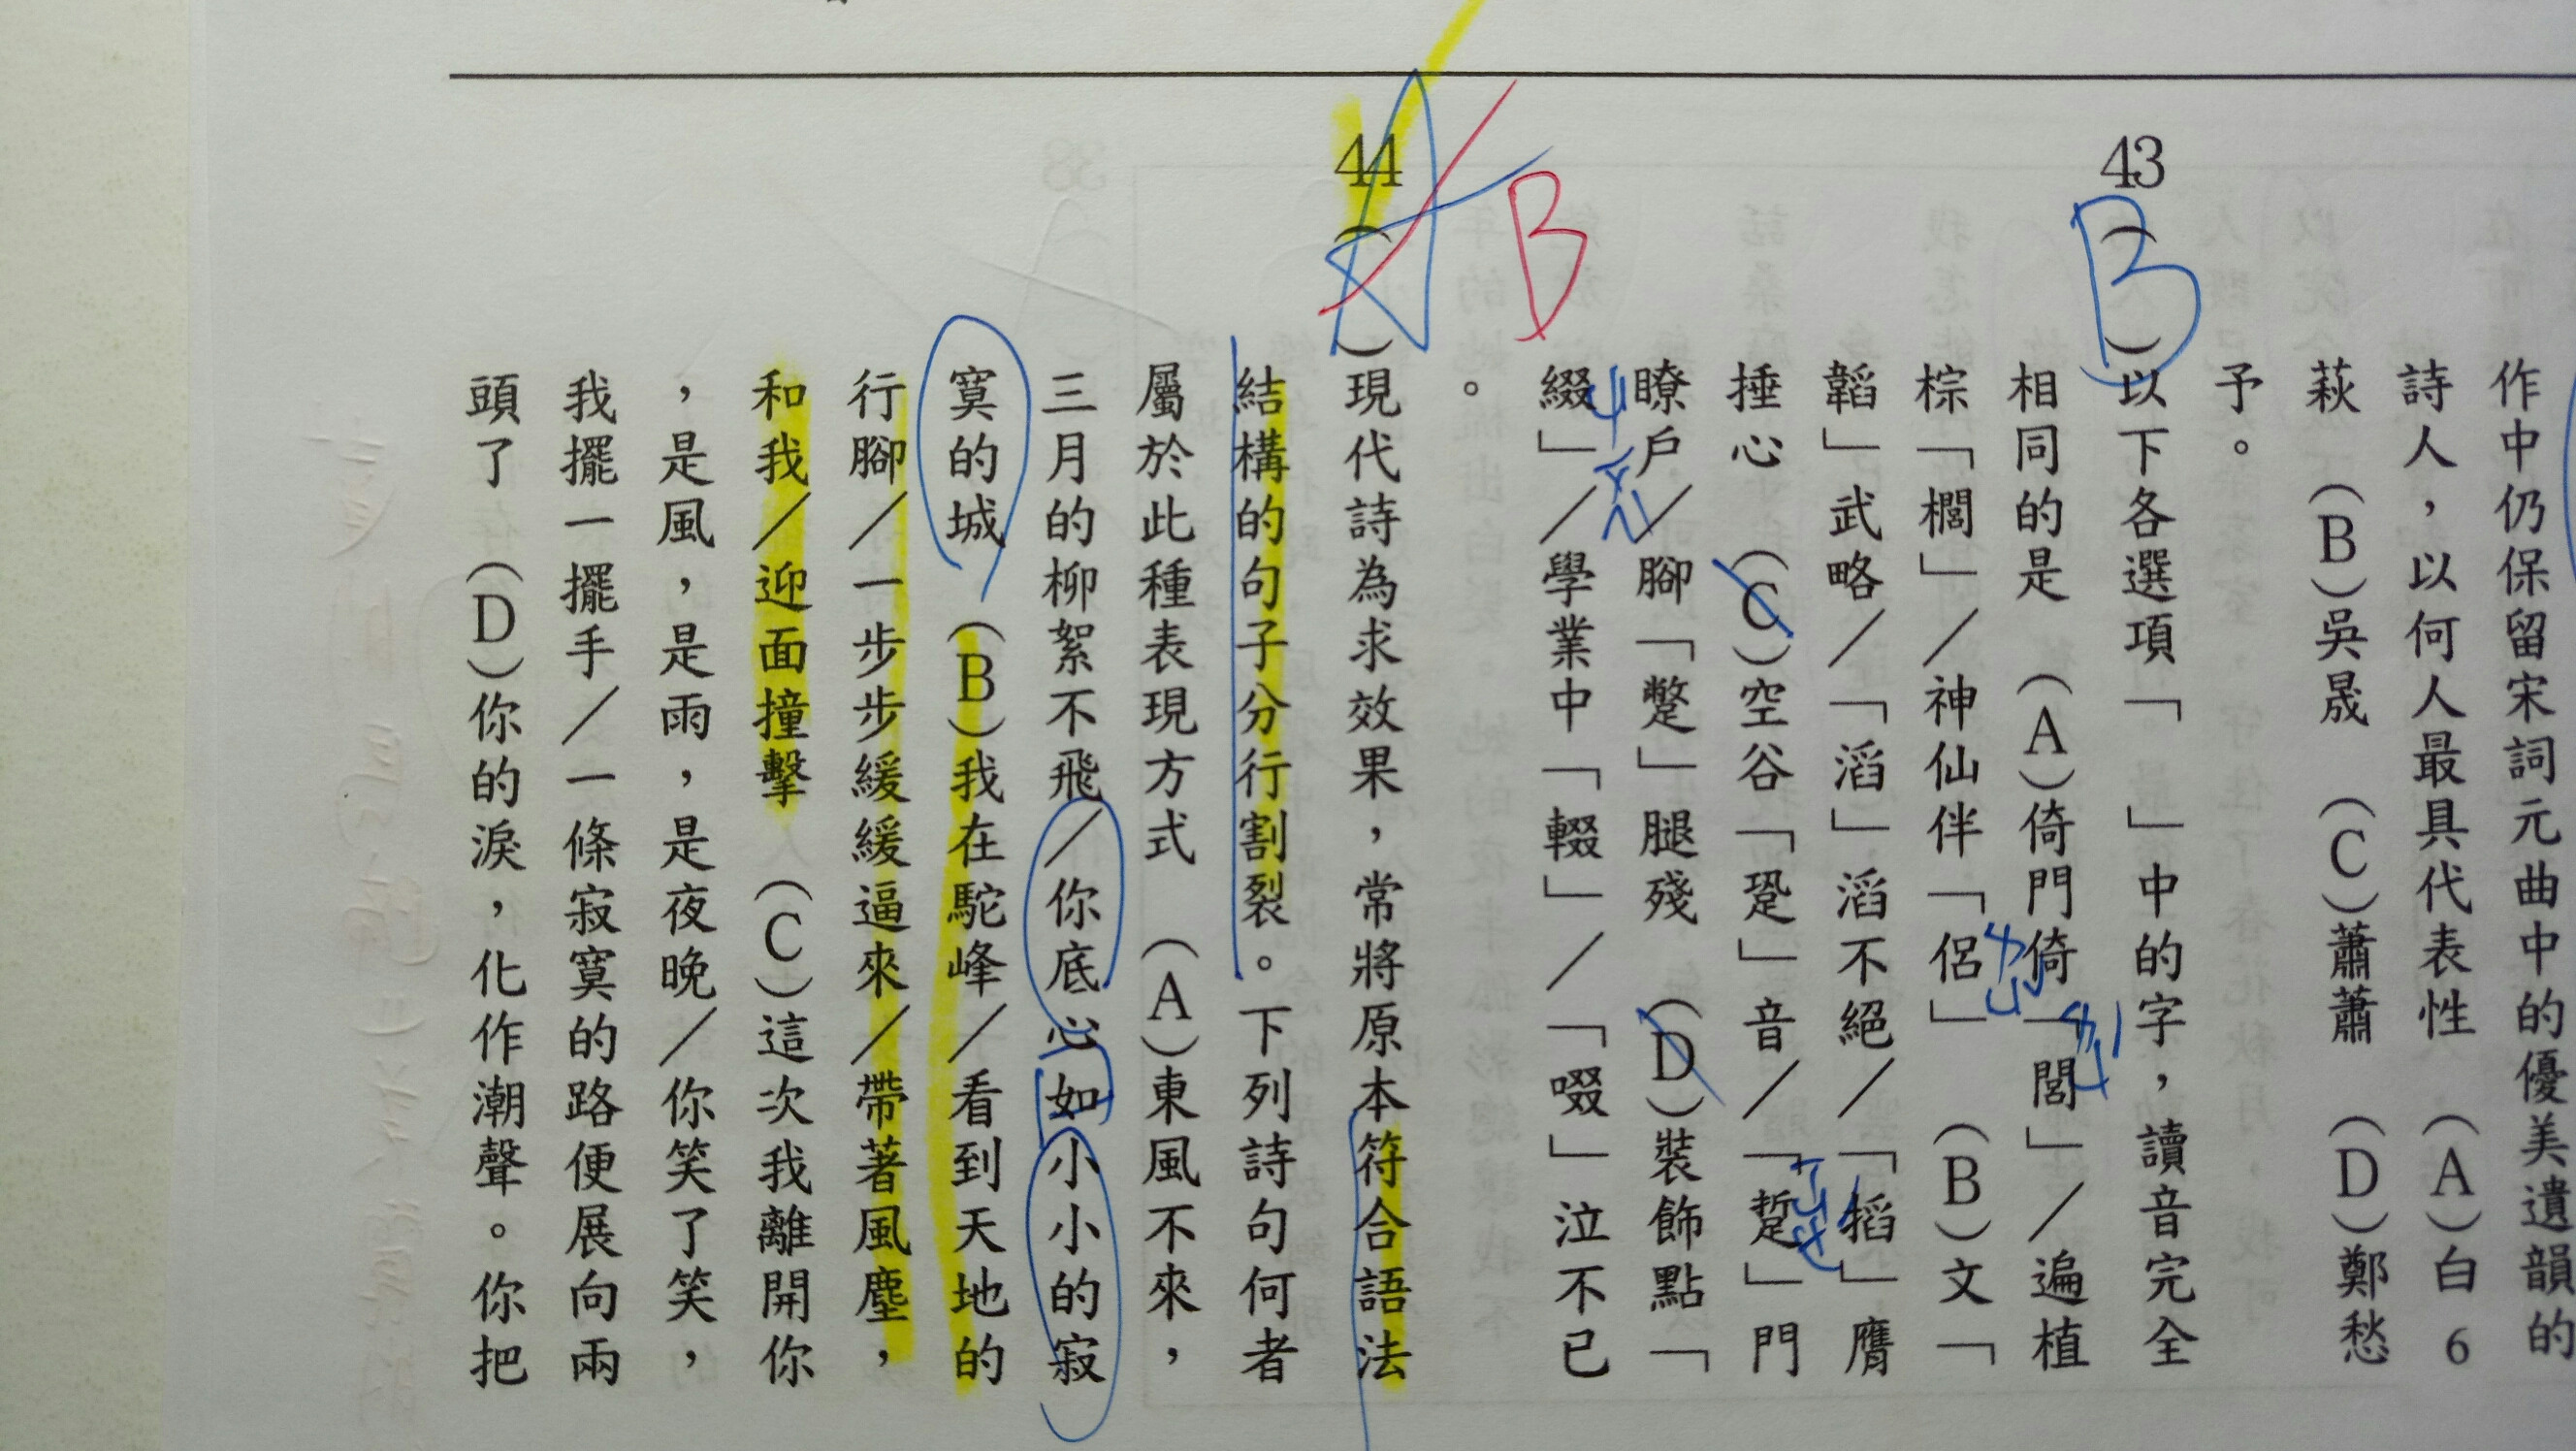 作中仍保留宋詞元曲中的優美遺韻的
詩人，以何人最具代表性　(A)白
萩　(B)吳晟　(C)蕭蕭　(D)鄭愁
予。
43
B
(　)以下各選項「　」中的字，讀音完全
相同的是　(A)倚門倚「閭」／遍植
棕「櫚」／神仙伴「侶」　(B)文「
韜」武略／「滔」滔不絕／「搯」膺
捶心　(C)空谷「跫」音／「踅」門
瞭戶／腳「蹩」腿殘　(D)裝飾點「
綴」／學業中「輟」／「啜」泣不已
。
44
A
B
(　)現代詩為求效果，常將原本符合語法
結構的句子分行割裂。下列詩句何者
屬於此種表現方式　(A)東風不來，
三月的柳絮不飛／你底心如小小的寂
寞的城　(B)我在駝峰／看到天地的
行腳／一步步緩緩逼來／帶著風塵，
和我／迎面撞擊　(C)這次我離開你
，是風，是雨，是夜晚／你笑了笑，
我擺一擺手／一條寂寞的路便展向兩
頭了　(D)你的淚，化作潮聲。你把
6